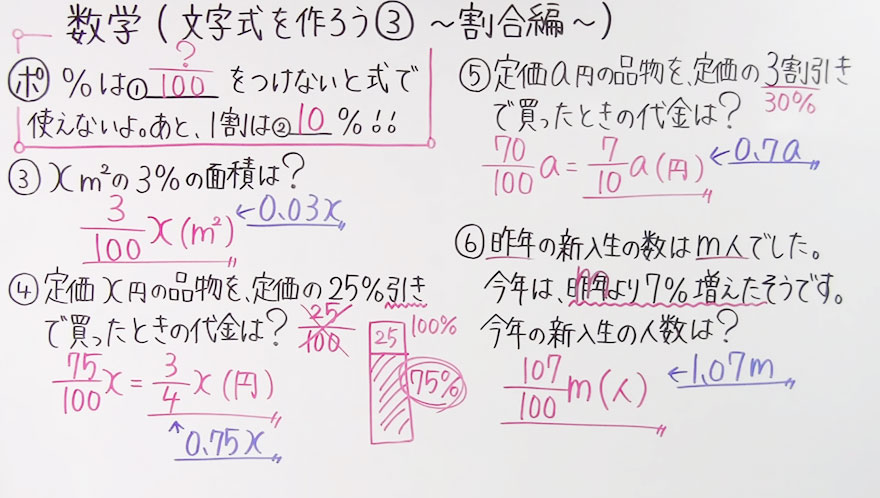 数学(文字式を作ろう③ ～割合編～)
ポ %は①?/100をつけないと式で
使えないよ。あと、1割は②10%!!
③ x m²の3%の面積は?
3/100 x (m²) ← 0.03x
④ 定価x円の品物を、定価の25%引き
で買ったときの代金は? 25/100
75/100 x = 3/4 x (円)
↑ 0.75x
25 100%
75%
⑤ 定価a円の品物を、定価の3割引き
30%
で買ったときの代金は?
70/100 a = 7/10 a (円) ← 0.7a
⑥ 昨年の新入生の数はm人でした。
m
今年は、昨年より7%増えたそうです。
今年の新入生の人数は?
107/100 m (人) ← 1.07m